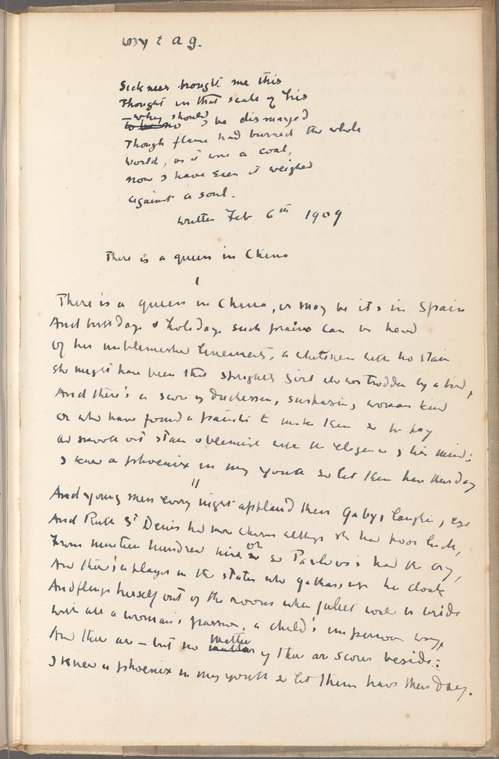 Sickness brought me this
Thought in that scale of his
why should I be dismayed
Though flame had burned the whole
World, as it were a coal,
now I have seen it weighed
against a soul.
written Feb 6th 1909
There is a queen in China
I
There is a queen in China, or may be it's in Spain
And birthdays & holidays such praises can be heard
Of her unblemished lineaments, a whiteness with no stain
she might have been that sprightly girl who was trodden by a bird,
And there's a score of duchesses, surpassing woman kind
or who have found a painter to make them so for pay
and smooth out stain & blemish with the elegance of his mind:
I knew a phoenix in my youth so let them have their day
II
And young men every night applaud their Gaby's laughing eye
And Ruth St Denis had more charm although she had poor luck,
From nineteen hundred nine or so Pavlova's had the cry,
And there's a player in the states who gathers up her cloak
And flings herself out of the room when Juliet would be bride
With all a woman's passion, a child's imperious way,
And there are — but no matter if there are scores beside:
I knew a phoenix in my youth so let them have their day.